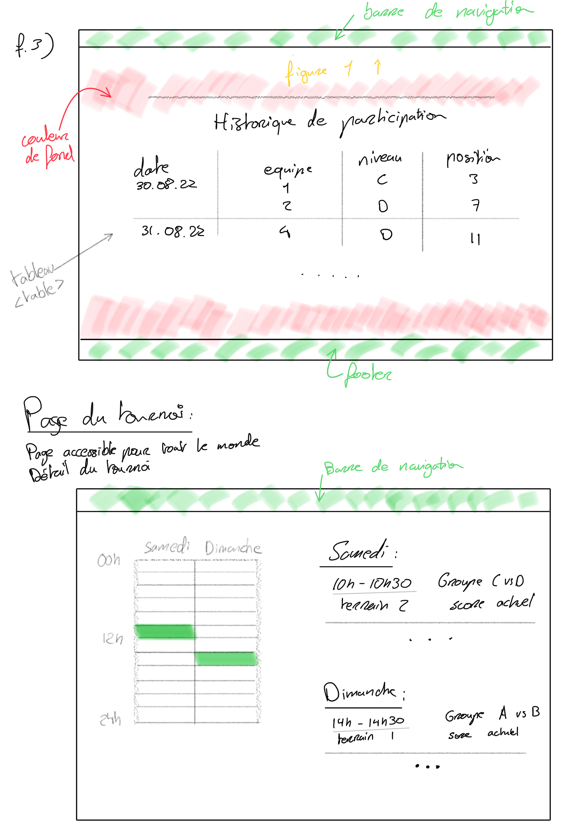 barre de navigation
f.3)
figure 1 1
couleur
de fond
Historique de participation
date equipe niveau position
30.08.22 1 C 3
2 D 7
31.08.22 4 D 11
tableau
<table>
.....
footer
Page du tournoi:
Page accessible pour tout le monde
Détail du tournoi
Barre de navigation
Samedi Dimanche
00h
12h
24h
Samedi:
10h-10h30 Groupe C vs D
terrain 2 score actuel
...
Dimanche:
14h-14h30 Groupe A vs B
terrain 1 score actuel
...